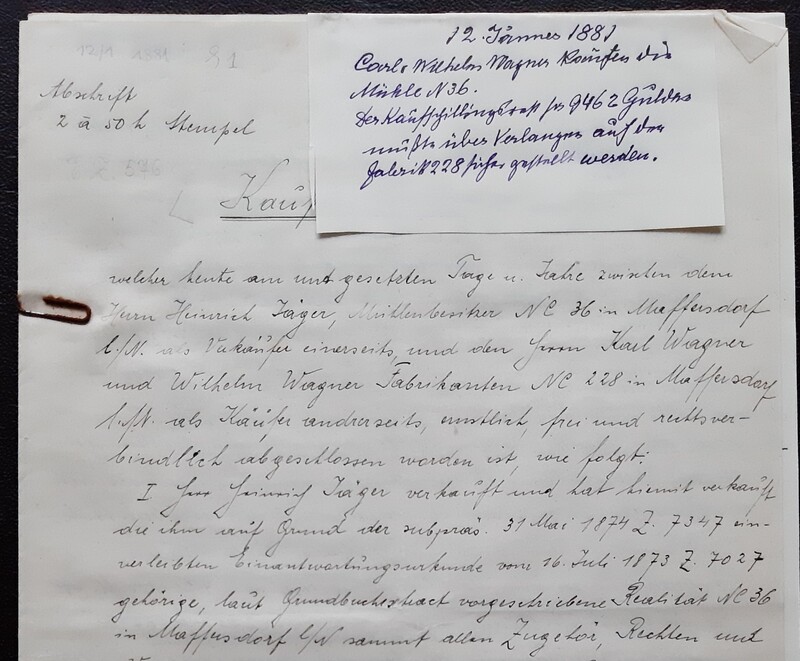 12. Jänner 1881
Carl & Wilhelm Wagner kauften die
Mühle N 36.
Der Kaufschillingsrest per 9462 Gulden
müßte über Verlangen auf der
Fabrik 228 sicher gestellt werden.
12/1 1881
Abschrift
2 à 50 h Stempel
Kauf
welcher heute am unt gesetzten Tage u. Jahre zwischen dem
Herrn Heinrich Jäger, Mühlenbesitzer NC 36 in Maffersdorf
l./N. als Verkäufer einerseits, und den Herrn Karl Wagner
und Wilhelm Wagner Fabrikanten NC 228 in Maffersdorf
l./N. als Käufer andrerseits, ernstlich, frei und rechtsver-
bindlich abgeschlossen worden ist, wie folgt:
I Herr Heinrich Jäger verkauft und hat hiemit verkauft
die ihm auf Grund der subpräs. 31 Mai 1874 Z. 7347 ein-
verleibten Einantwortungsurkunde vom 16. Juli 1873 Z. 7027
gehörige, laut Grundbuchsextract vorgeschriebene Realität NC 36
in Maffersdorf l/N sammt allen Zugehör, Rechten und